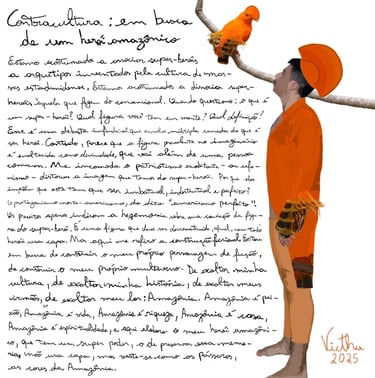 Contracultura: em busca
de um herói amazônico
Estamos acostumados a associar super-heróis
a arquétipos inventados pela cultura de mas-
sas estadunidense, Estamos acostumados a super-
heróis que fogem do convencional. Quando questiono: o que é
um super-herói? Qual figura vem em mente? Qual definição?
Esse é um debate que envolve múltiplas camadas do que é
ser herói. Contudo, parece que a figura no imaginário
é enaltecida como divindade, que vai além de uma pessoa
comum. Me incomoda o patriotismo - o
- distorce a imagem que temos do super-herói. Por que eles
impõem que este tem que ser imbatível, indestrutível e perfeito?
O protagonismo norte-americano, do dito "americano perfeito".
a hegemonia sobre sua de figu-
ra do super-herói. É uma figura que deve ser desconstruída, afinal, nem todo
herói usa capa. Mas aqui me refiro a construção ficcional. Estou
em busca de construir o meu próprio personagem de ficção,
de construir o meu próprio multiverso. De exaltar minha
cultura, de exaltar minha história, de exaltar meus
irmãos, de exaltar meu lar: Amazônia. Amazônia é pai-
xão, Amazônia é vida, Amazônia é riqueza, Amazônia é casa,
Amazônia é espiritualidade, e aqui elaboro o meu herói amazôni-
co, que tem um super poder, o de preservar essa memó-
ria, não usa capa, mas veste-se como os pássaros,
as cores da Amazônia.
Victhu
2025